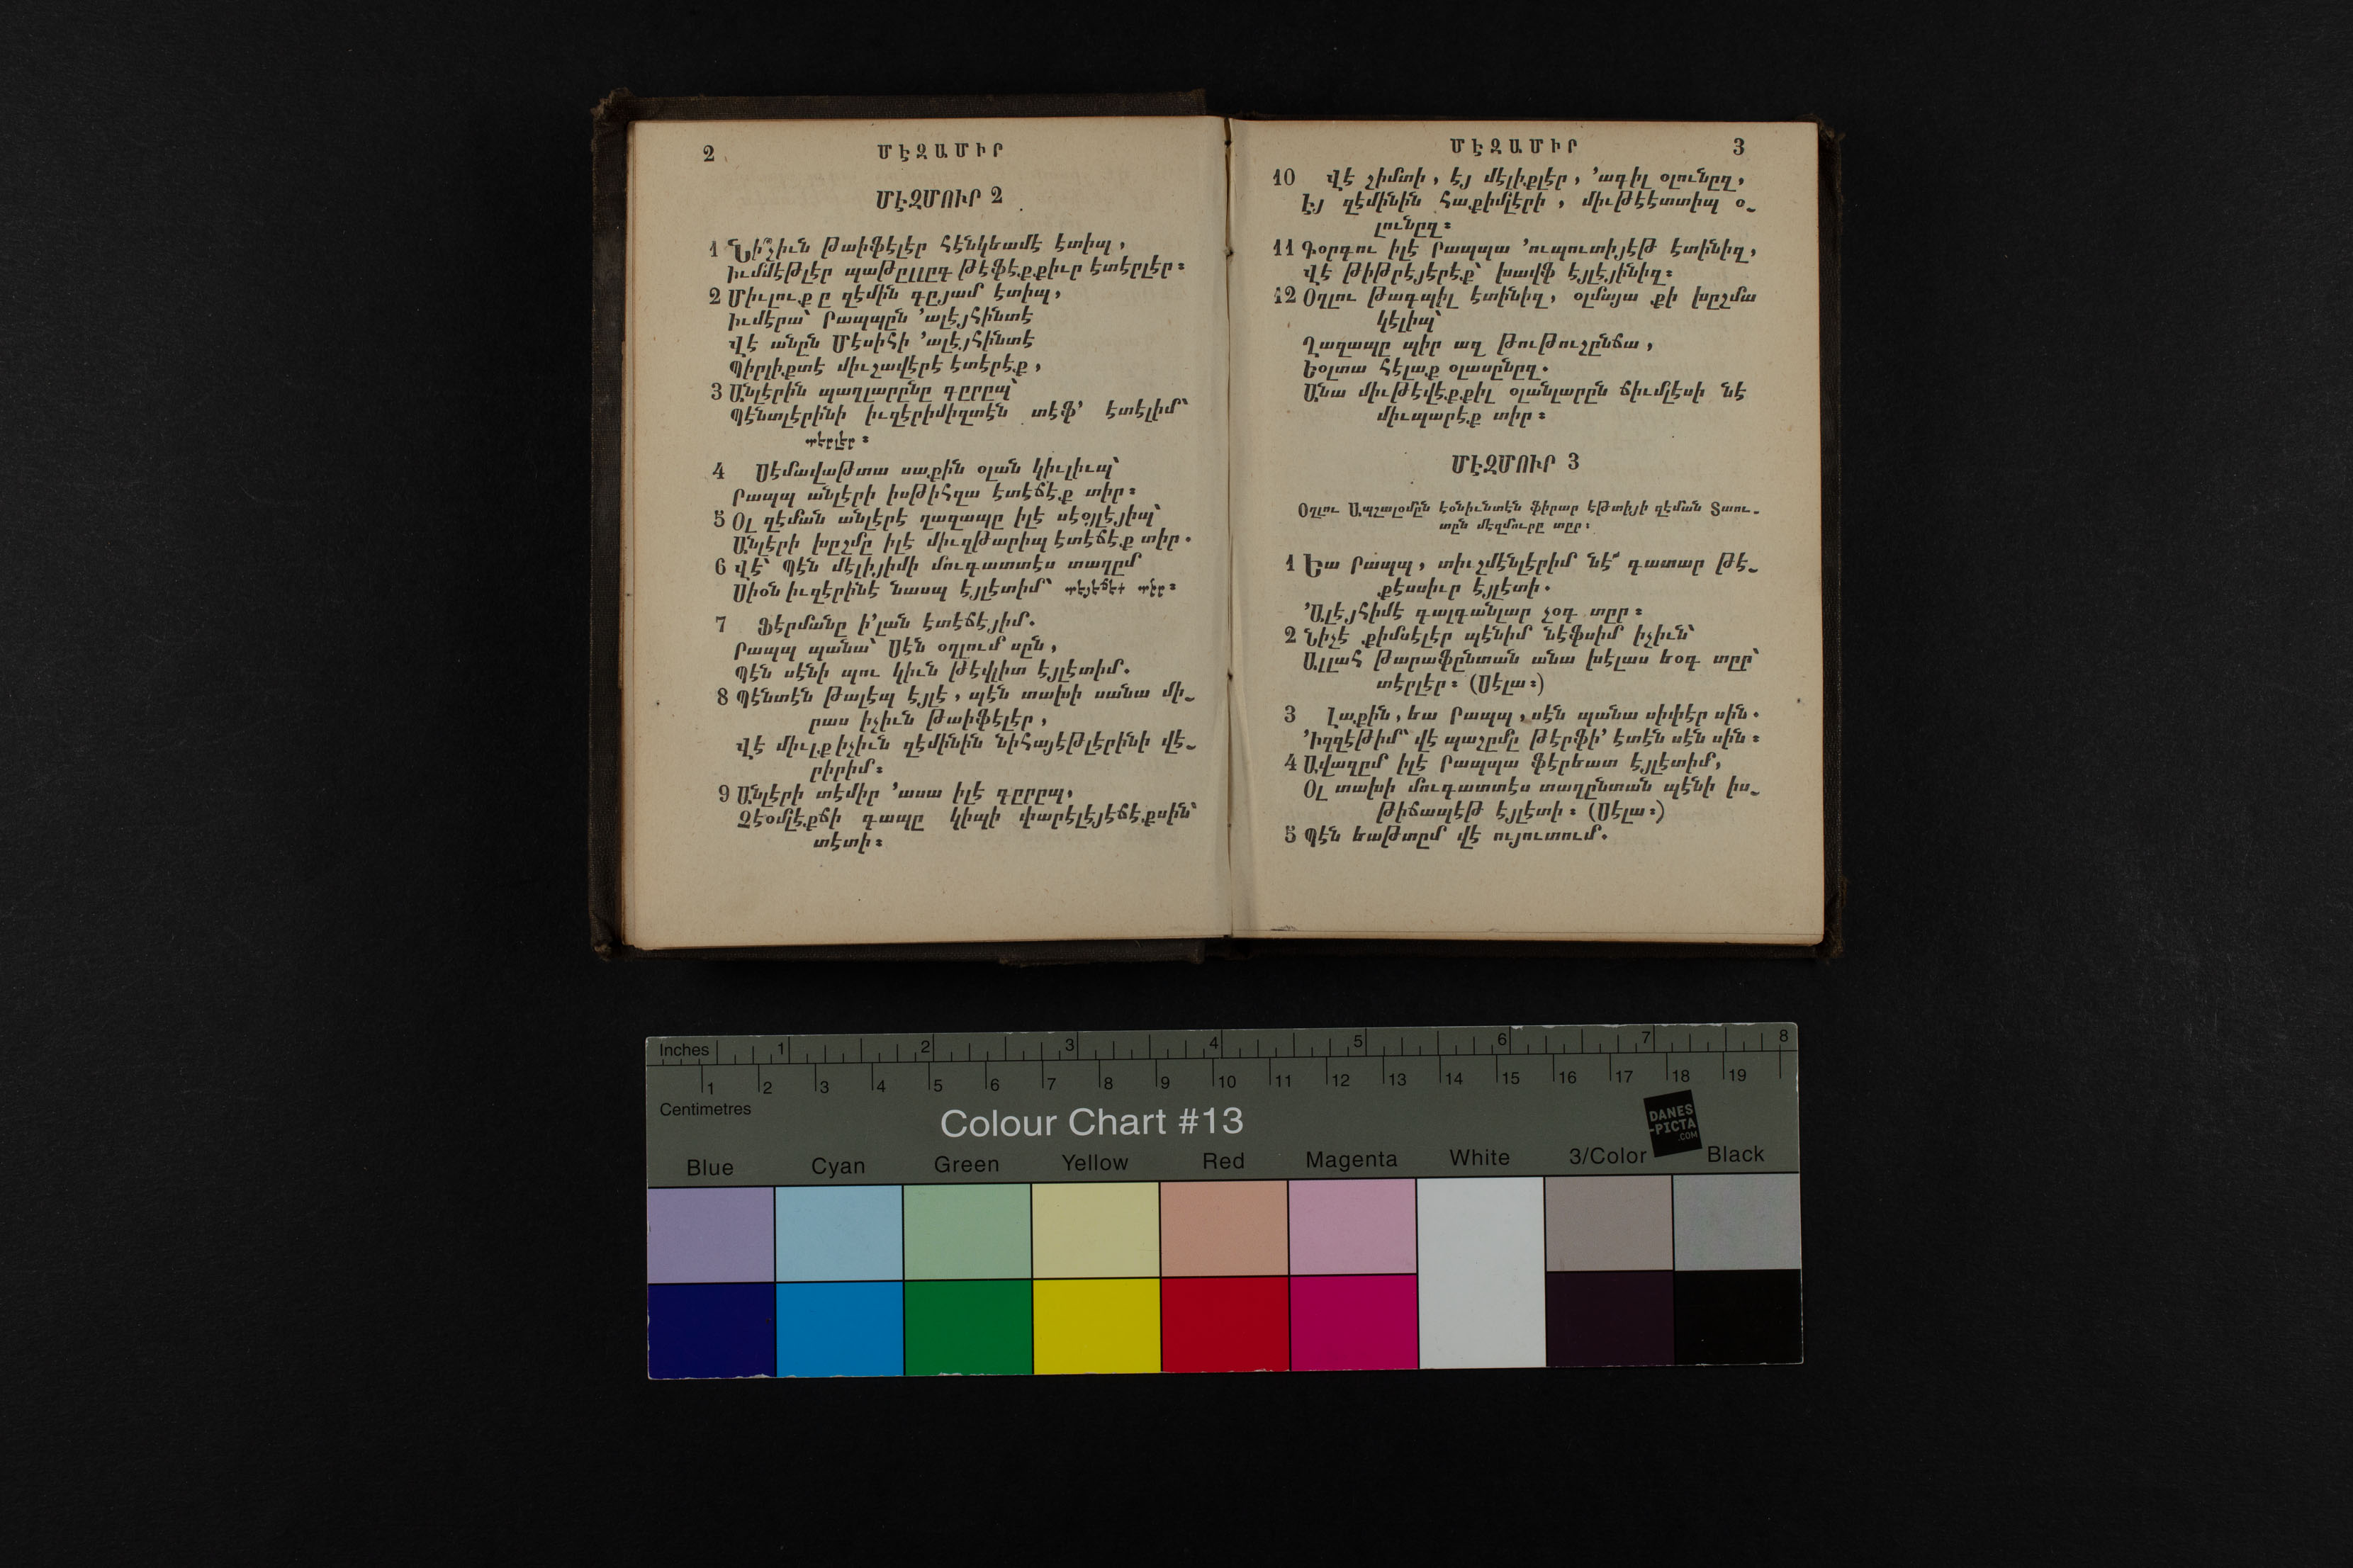 2 ՄԷԶԱՄԻՐ
ՄԷԶՄՈՒՐ 2
1 Նի՞չիւն թաիֆէլէր հէնկեամէ էտիպ,
Իւմմէթլէր պաթըլլըգ թէֆէքքիւր էտէրլէր։
2 Միւլուքը զէմին գըյամ էտիպ,
Իւմէրա՝ Րապպըն ՚ալէյհինտէ
Վէ անըն Մէսիհի ՚ալէյհինտէ
Պիրլիքտէ միւշավէրէ էտէրէք,
3 Անլէրին պաղլարընը գըրըպ՝
Պէնտլէրինի իւզէրիմիզտէն տէֆ՚ էտէլիմ՝
տէրլէր։
4 Սէմավաթտա սաքին օլան կիւլիւպ՝
Րապպ անլէրի իսթիհզա էտէճէք տիր։
5 Օլ զէման անլէրէ ղաղապը իլէ սէօյլէյիպ՝
Անլէրի խըշմը իլէ միւղթարիպ էտէճէք տիր.
6 Վէ՝ Պէն մէլիյիմի մուգատտէս տաղըմ
Սիօն իւզէրինէ նասպ էյլէտիմ՝ տէյէճէք տիր։
7 Ֆէրմանը ի՚լան էտէճէյիմ.
Րապպ պանա՝ Սէն օղլում սըն,
Պէն սէնի պու կիւն թէվլիտ էյլէտիմ.
8 Պէնտէն թալէպ էյլէ, պէն տախի սանա մի֊
րաս իչիւն թաիֆէլէր,
Վէ միւլք իչիւն զէմինին նիհայէթլէրինի վէ֊
րիրիմ։
9 Անլէրի տէմիր ՚ասա իլէ գըրըպ,
Չէօմլէքճի գապը կիպի փարէլէյէճէքսին՝
տէտի։
ՄԷԶԱՄԻՐ 3
10 Վէ շիմտի, էյ մէլիքլէր, ՚ագիլ օլունըզ,
Էյ զէմինին հաքիմլէրի, միւթէէտտիպ օ֊
լունըզ։
11 Գօրգու իլէ Րապպա ՚ուպուտիյէթ էտինիզ,
Վէ թիթրէյէրէք՝ խավֆ էյլէյինիզ։
12 Օղլու թագպիլ էտինիզ, օլմայա քի խըշմա
կէլիպ՝
Ղաղապը պիր ազ թութուշընճա,
Եօլտա հէլաք օլասընըզ.
Անա միւթէվէքքիլ օլանլարըն ճիւմլէսի նէ
միւպարէք տիր։
ՄԷԶՄՈՒՐ 3
Օղլու Ապշալօմըն էօնիւնտէն ֆիրար էթտիյի զէման Տաու֊
տըն մէզմուրը տըր։
1 Եա Րապպ, տիւշմէնլէրիմ նէ՛ գատար թէ֊
քէսսիւր էյլէտի.
՚Ալէյհիմէ գալգանլար չօգ տըր։
2 Նիչէ քիմսէլէր պէնիմ նէֆսիմ իչիւն՝
Ալլահ թարաֆընտան անա խէլաս եօգ տըր՝
տէրլէր։ (Սէլա։)
3 Լաքին, եա Րապպ, սէն պանա սիփէր սին.
՚Իզզէթիմ՝ վէ պաշըմը թէրֆի՚ էտէն սէն սին։
4 Ավազըմ իլէ Րապպա ֆէրեատ էյլէտիմ,
Օլ տախի մուգատտէս տաղընտան պէնի իս֊
թիճապէթ էյլէտի։ (Սէլա։)
5 Պէն եաթտըմ վէ ույուտում.
Inches 1 2 3 4 5 6 7 8
1 2 3 4 5 6 7 8 9 10 11 12 13 14 15 16 17 18 19
Centimetres
Colour Chart #13
DANES
-PICTA
.COM
Blue Cyan Green Yellow Red Magenta White 3/Color Black